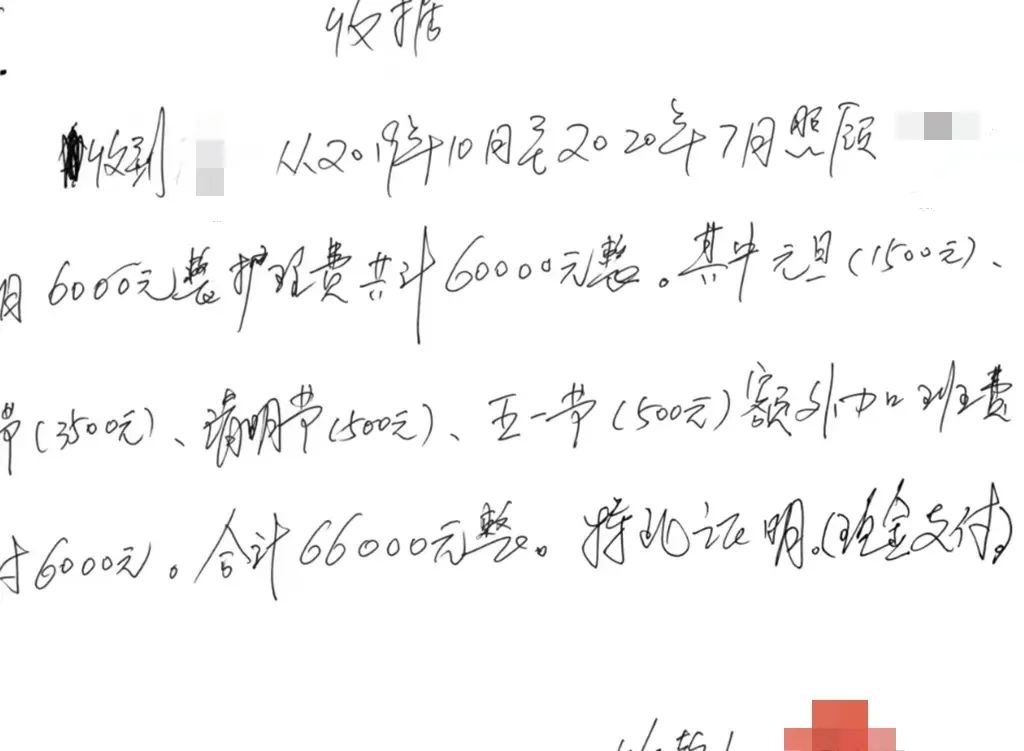 收据
收到 从2019年10月至2020年7月照顾
月6000元整护理费共计60000元整。其中元旦(1500元)、
节(3500元)、清明节(500元)、五一节(500元)额外加班费
计6000元。合计66000元整。特此证明。(现金支付)
收款人